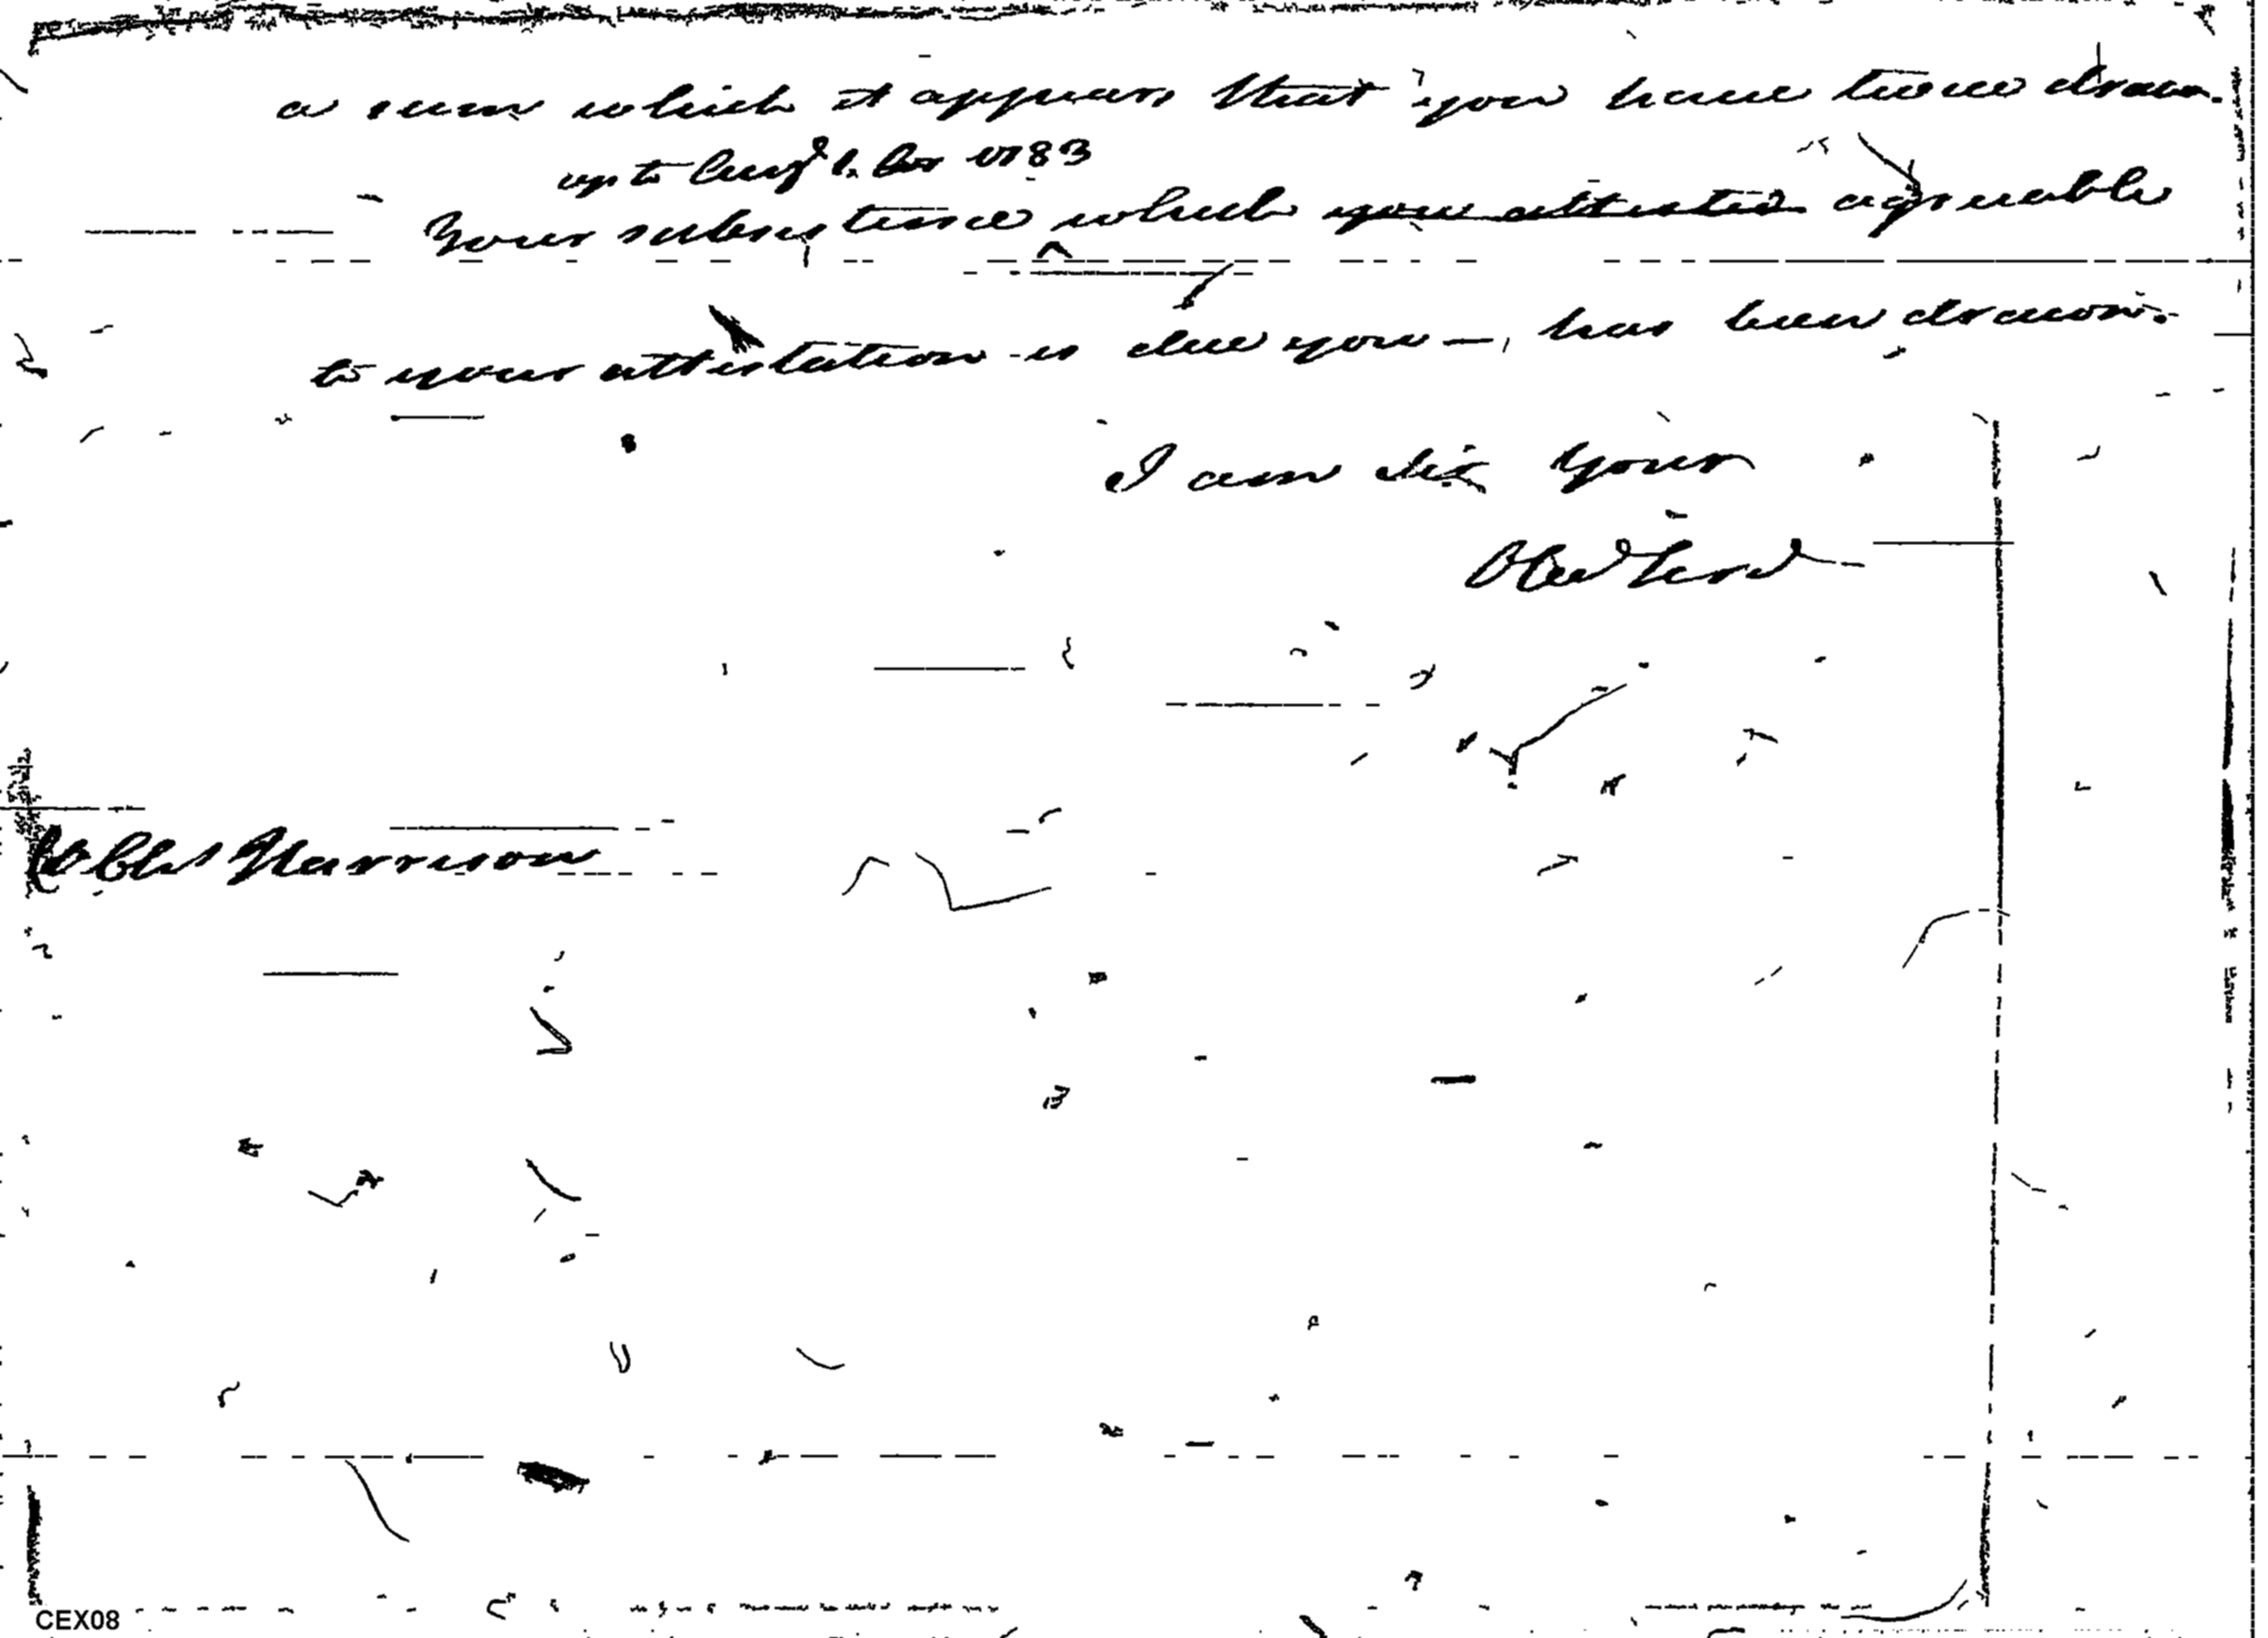 a sum which it appears that you have twice drawn.
up to Augt 1. 1783
Your subsistence which you attested agreeable
to your attestation is due you —, has been drawn.
I am Sir Your
Obed Serv
Col Chs Harrison
CEX08